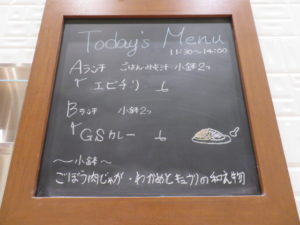 Today's Menu
11:30~14:00
Aランチ ごはん・みそ汁・小鉢2つ
エビチリ
Bランチ 小鉢2つ
GSカレー
～小鉢～
ごぼう肉じゃが・わかめとキュウリの和え物